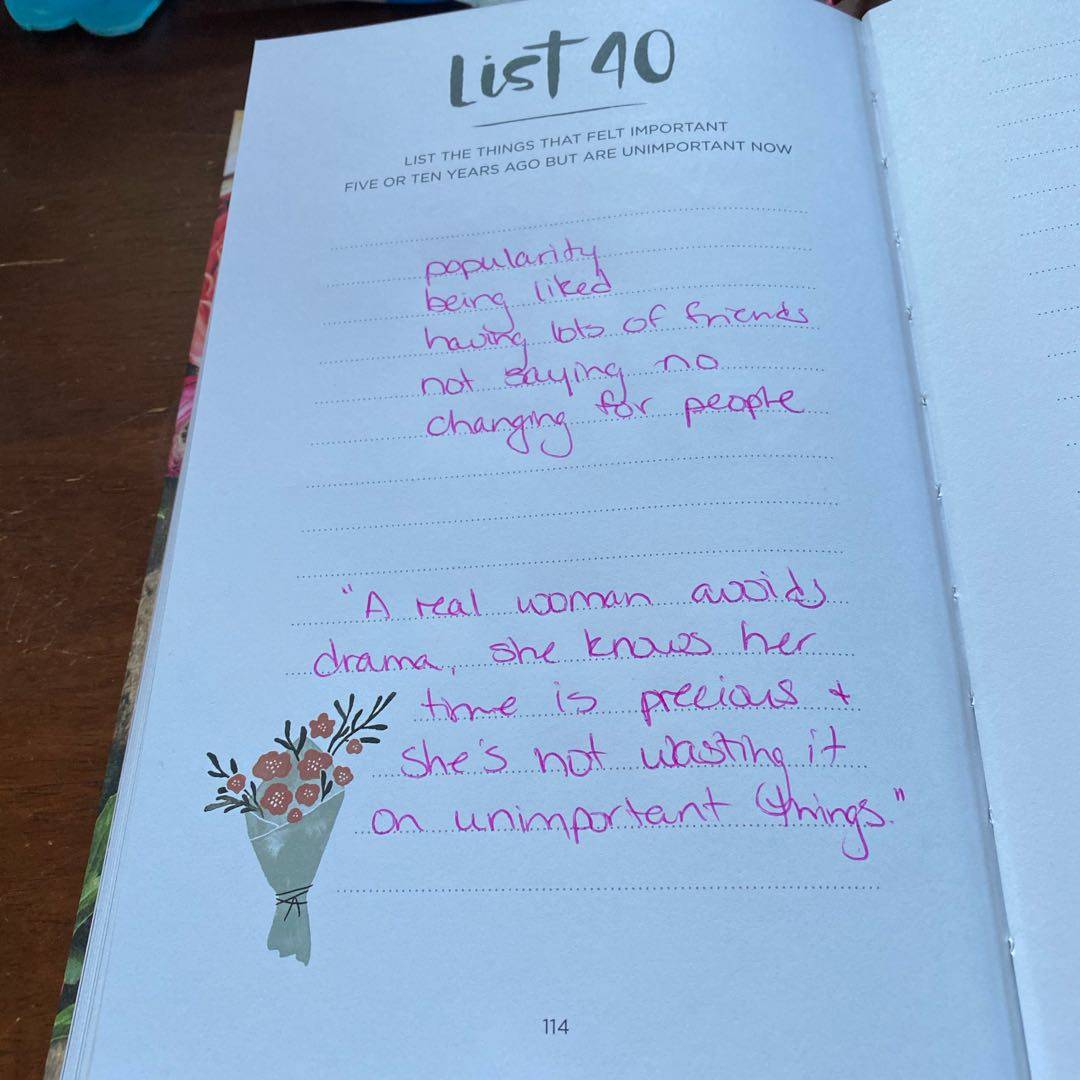 List 40
LIST THE THINGS THAT FELT IMPORTANT
FIVE OR TEN YEARS AGO BUT ARE UNIMPORTANT NOW
popularity
being liked
having lots of friends
not saying no
changing for people
"A real woman avoids
drama, she knows her
time is precious +
she's not wasting it
on unimportant things."
114